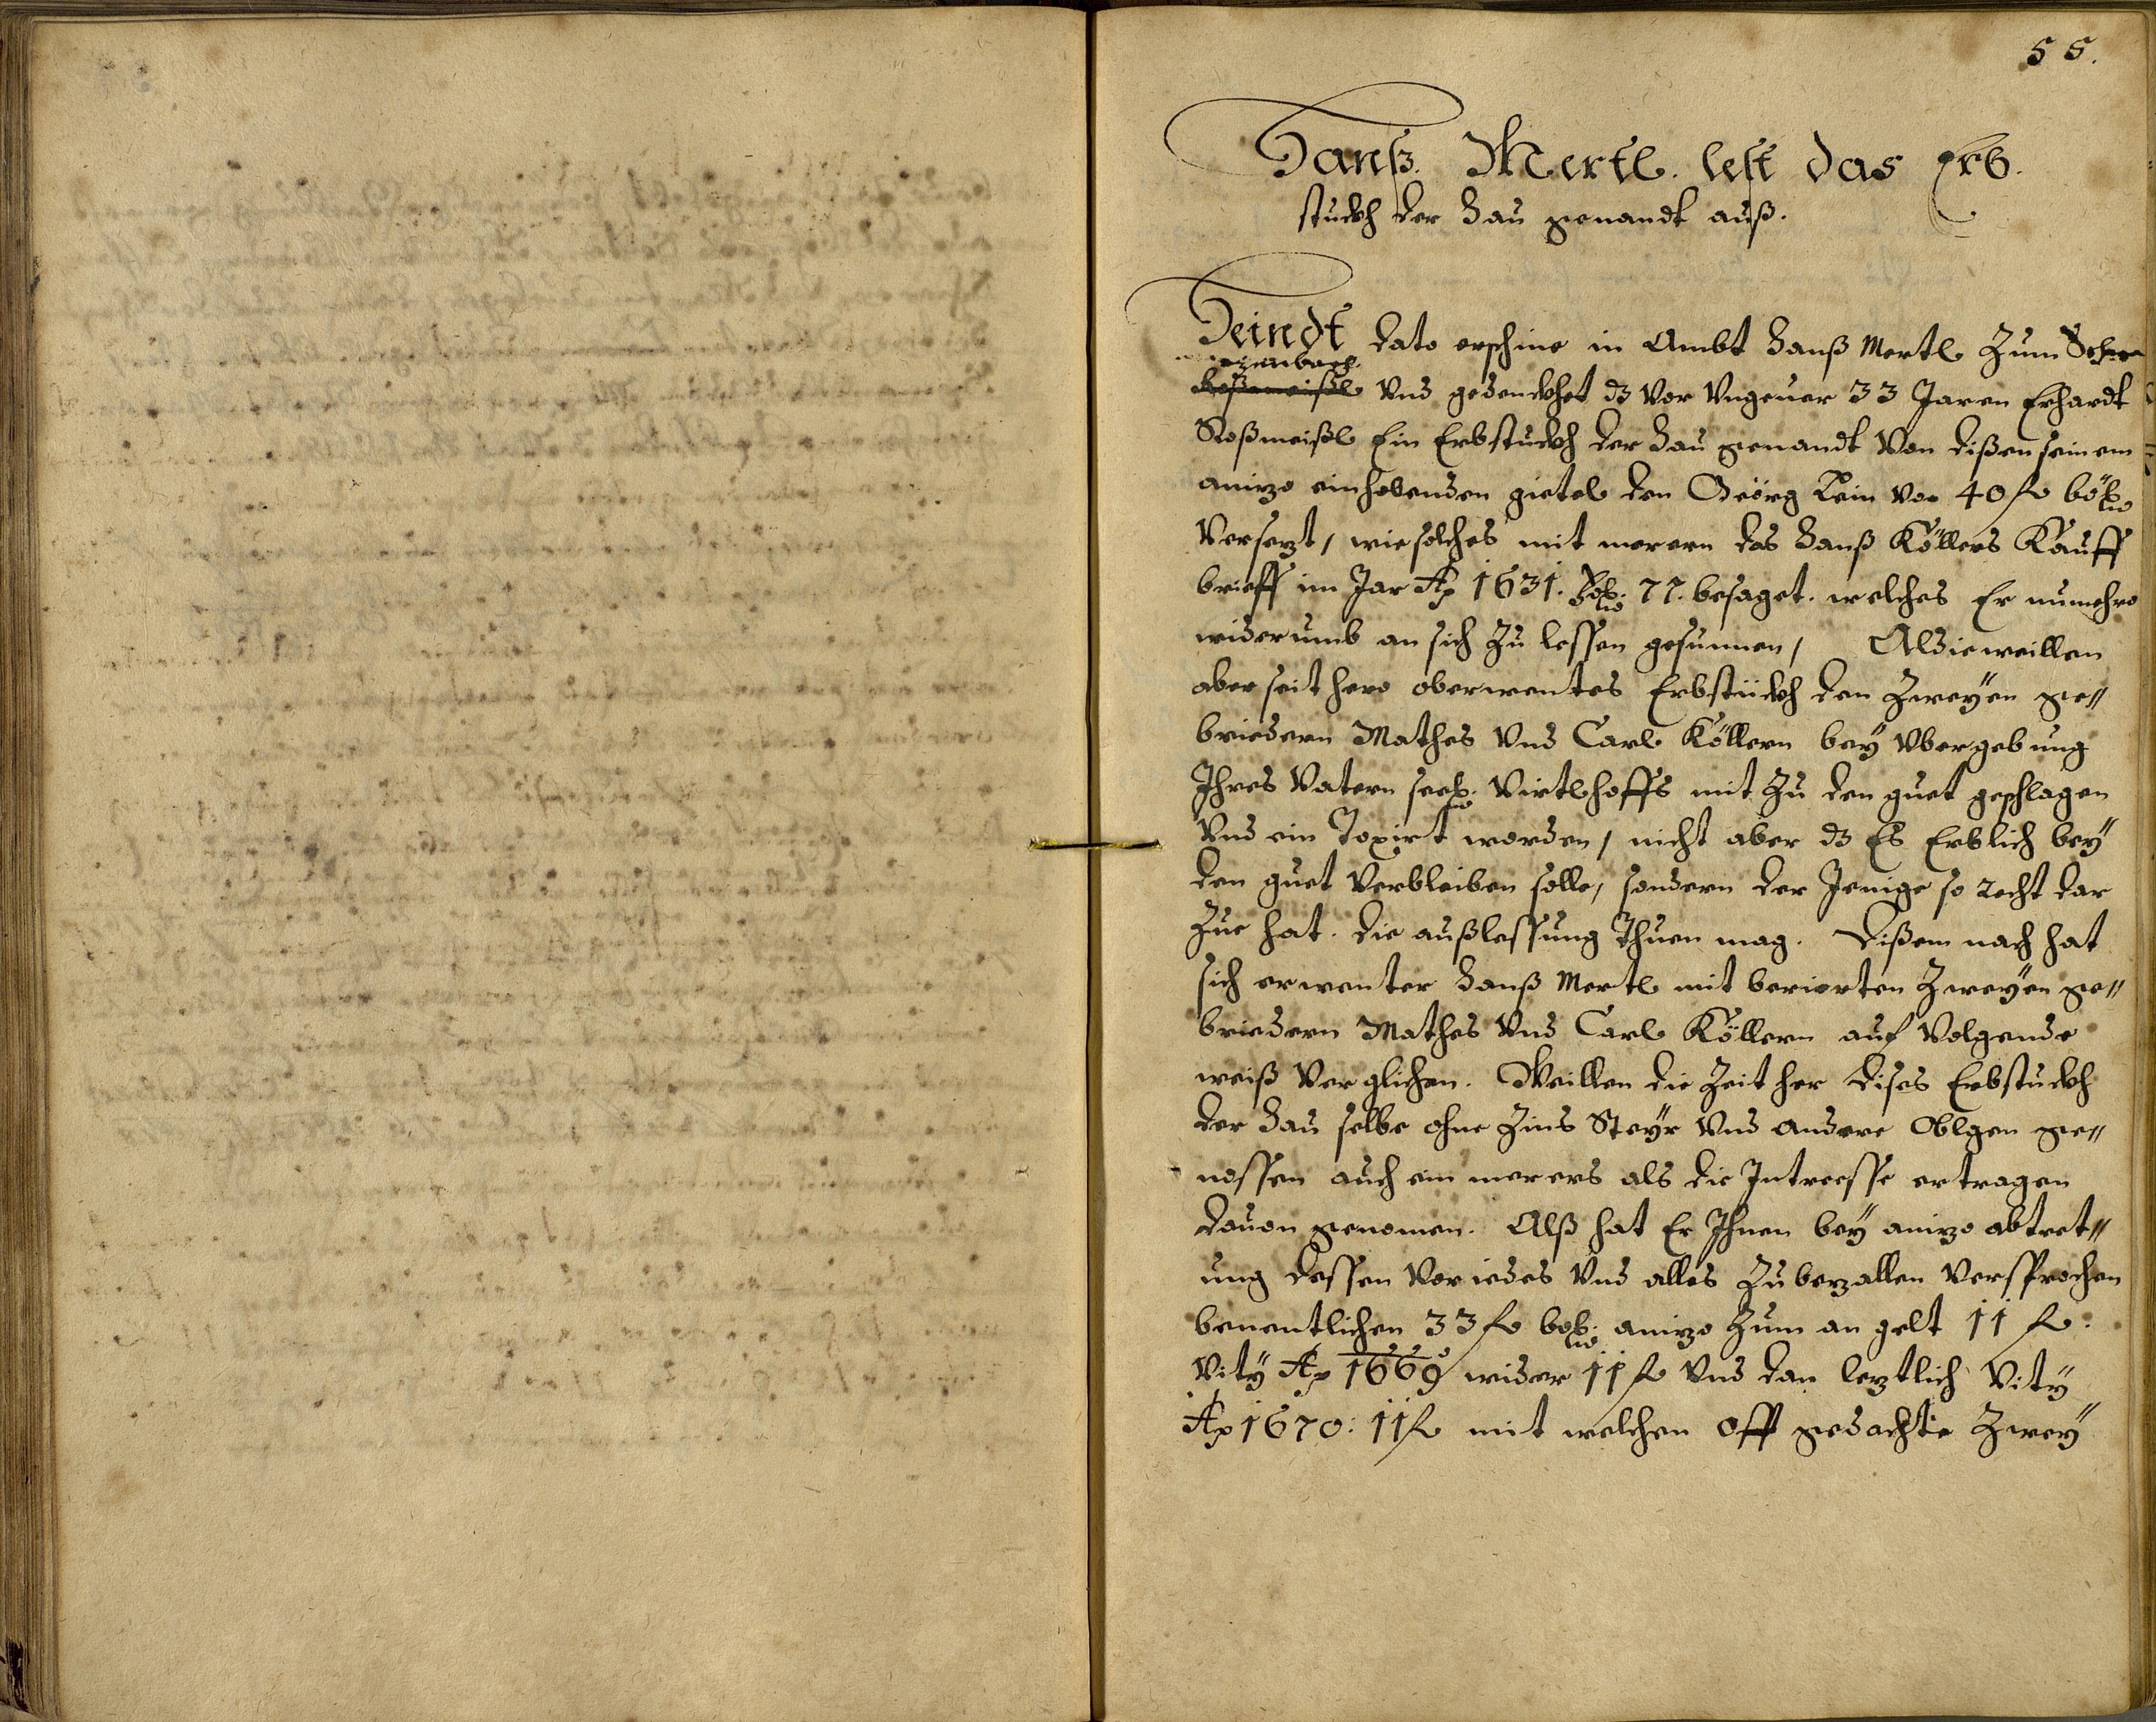 55.
Hanß. Mertl. lest das Erb.
stuckh der Hau genandt auß.
Heindt dato erschine in Ambt Hanß Mertl Zum
Vnd gedenckhet dz vor Vngeuer 33 Jaren Erhardt
Roßmeißl Ein Erbstuckh der Hau genandt Von dißen seinem
aniezo einhebenden gietel den Geörg Lein vor 40 fl böh
Versezt, wie solches mit merern das Hanß Köllers Kauff
brieff im Jar Ao 1631. fol: 77. besaget. welches Er numehro
widerumb an sich Zu lessen gesunnen, Aldieweillen
aber seit hero oberwentes Erbstückh den Zweÿen ge//
briedern Mathes Vnd Carl Köllern beÿ Vbergebung
Ihres Vatern seel: Virtlhoffs mit Zu den guet geschlagen
Vnd ein Taxirt worden, nicht aber dz Es Erblich beÿ
den guet Verbleiben solle, sondern der Jenige so recht dar
Zue hat. die außlessung Thuen mag. Dißem nach hat
sich erwenter Hanß Mertl mit berierten Zweÿen ge//
briedern Mathes Vnd Carl Köllern auf Volgende
weiß Verglichen. Weillen die Zeit her dises Erbstuckh
der Hau selbe ohne Zins Steÿr Vnd andere Oblgen ge//
nossen auch ein merers als die Intreesse ertragen
dauon genomen. Alß hat Er Ihnen beÿ aniezo abtret//
ung dessen Vor iedes Vnd alles Zu bezallen Versprochen
benentlichen 33 fl böh: aniezo Zum an gelt 11 fl:
Vitÿ Ao 1669 wider 11 fl Vnd dan leztlich Vitÿ
Ao 1670: 11 fl mit welchen Offt gedachte Zweÿ